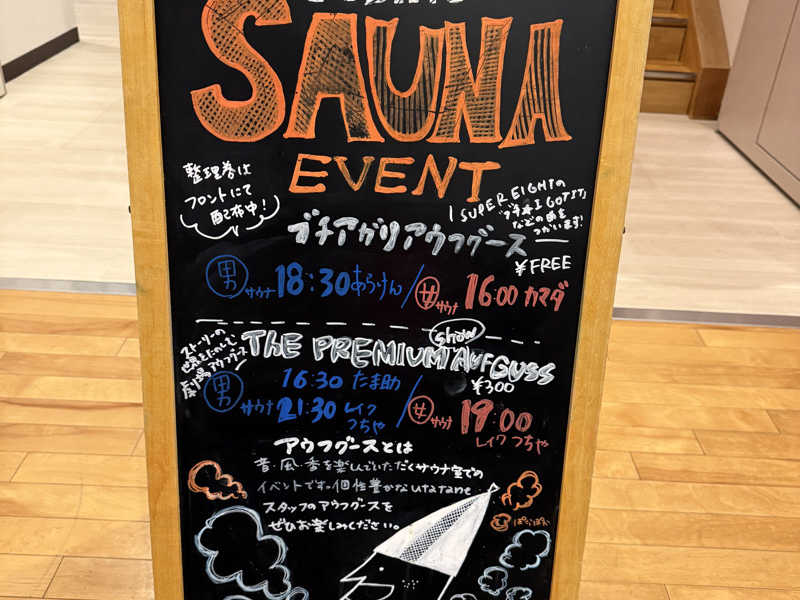 SAUNA
EVENT
整理券は
フロントにて
配布中!
SUPER EIGHTの
"ブチ★I GOT IT"
などの曲を
つかいます!
ブチアガリアウフグース
¥FREE
男サウナ 18:30 あらけん / 女サウナ 16:00 カマダ
ストーリーの
世界をたのしむ
劇場のアウフグース
THE PREMIUM show AUFGUSS
¥300
男サウナ 16:30 たま助
21:30 レイクつちや
/ 女サウナ 19:00
レイクつちや
アウフグースとは
音・風・香を楽しんでいただくサウナ室での
イベントです。個性豊かなutatane
スタッフのアウフグースを
ぜひお楽しみください。
ぽかぽか